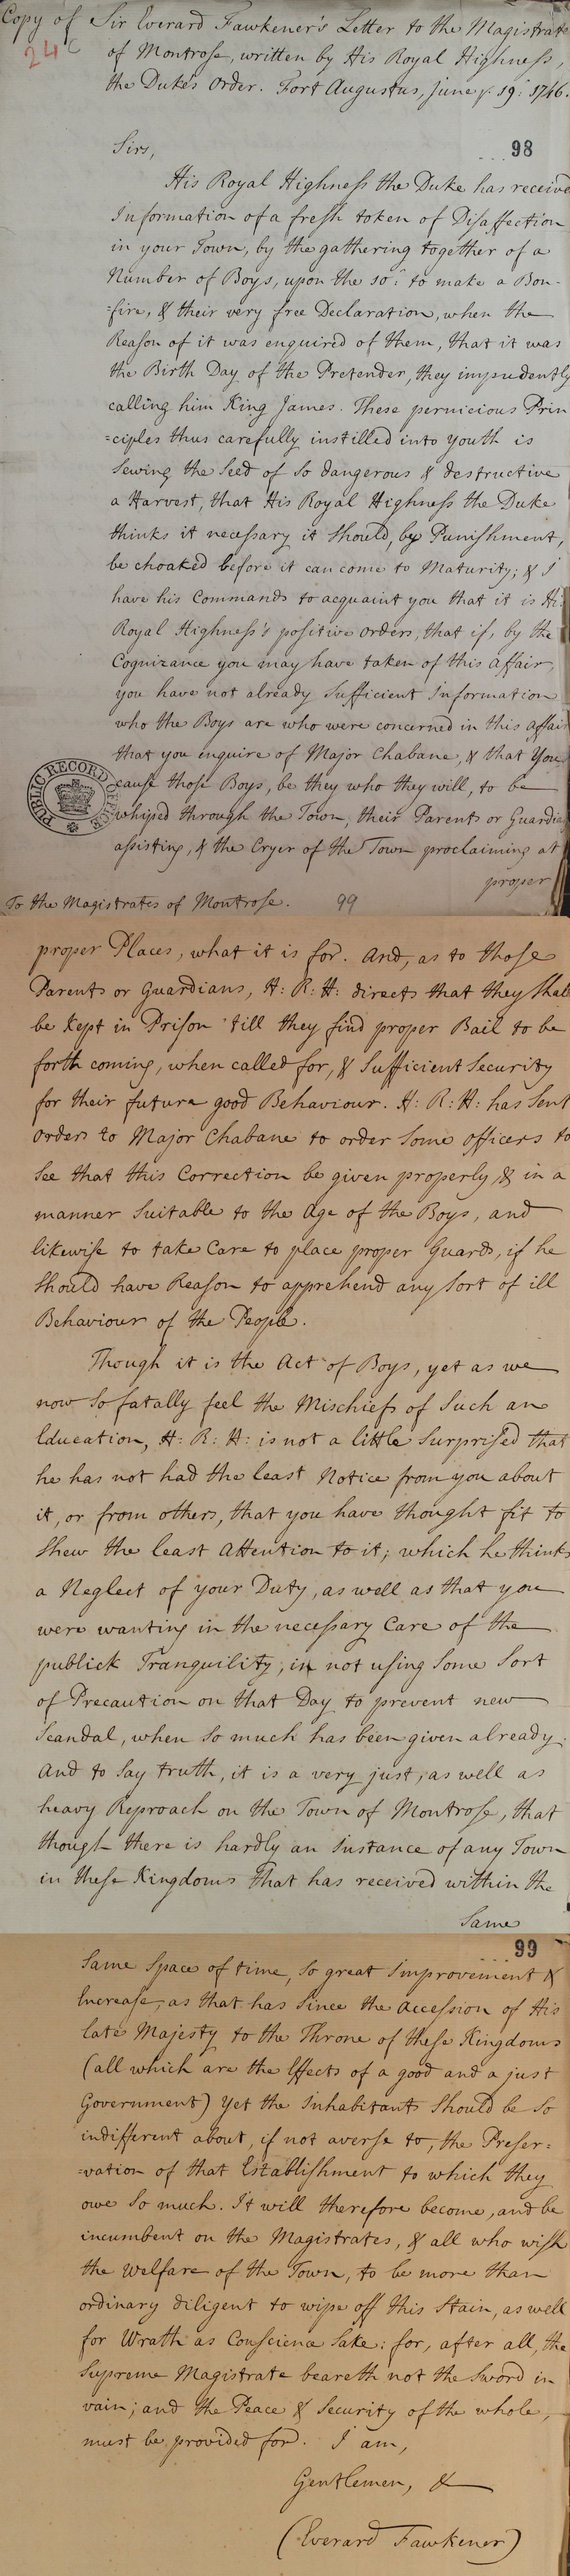 Copy of Sir Everard Fawkener's Letter to the Magistrate
24 c
of Montrose, written by His Royal Highness,
the Duke's Order. Fort Augustus, June ye. 19: 1746.
98
Sirs,
His Royal Highness the Duke has receive
Information of a fresh token of Disaffection
in your Town, by the gathering together of a
Number of Boys, upon the 10th: to make a Bon-
=fire, & their very free Declaration, when the
Reason of it was enquired of them, that it was
the Birth Day of the Pretender, they impudently
calling him King James. These pernicious Prin
=ciples thus carefully instilled into youth is
sewing the Seed of so dangerous & destructive
a Harvest, that His Royal Highness the Duke
thinks it necessary it should, by Punishment,
be choaked before it can come to Maturity; & I
have his Commands to acquaint you that it is His
Royal Highness's positive orders, that if, by the
Cognizance you may have taken of this affair,
you have not already Sufficient Information
who the Boys are who were concerned in this affair
that you enquire of Major Chabane, & that You
cause those Boys, be they who they will, to be
whiped through the Town, their Parents or Guardia
assisting, & the Cryer of the Town proclaiming at
proper
PUBLIC RECORD OFFICE
To the Magistrates of Montrose.
99
proper Places, what it is for. And, as to those
Parents or Guardians, H: R: H: directs that they shall
be Kept in Prison 'till they find proper Bail to be
forth coming, when called for, & Sufficient Security
for their future good Behaviour. H: R: H: has sent
orders to Major Chabane to order some officers to
See that this Correction be given properly, & in a
manner Suitable to the Age of the Boys, and
likewise to take Care to place proper Guards, if he
Should have Reason to apprehend any Sort of ill
Behaviour of the People.
Though it is the Act of Boys, yet as we
now so fatally feel the Mischiefs of Such an
Education, H: R: H: is not a little Surprised that
he has not had the least Notice from you about
it, or from others, that you have thought fit to
Shew the least Attention to it; which he thinks
a Neglect of your Duty, as well as that you
were wanting in the necessary Care of the
publick Tranquility, in not using Some Sort
of Precaution on that Day to prevent new
Scandal, when so much has been given already.
And to Say truth, it is a very just, as well as
heavy Reproach on the Town of Montrose, that
though there is hardly an Instance of any Town
in these Kingdoms that has received within the
Same
99
Same Space of time, so great Improvement &
Increase, as that has Since the accession of His
late Majesty to the Throne of these Kingdoms
(all which are the Effects of a good and a just
Government) yet the Inhabitants Should be So
indifferent about, if not averse to, the Preser=
=vation of that Establishment to which they
owe So much. It will therefore become, and be
incumbent on the Magistrates, & all who wish
the Welfare of the Town, to be more than
ordinary diligent to wipe off this Stain, as well
for Wrath as Conscience Sake: for, after all, the
Supreme Magistrate beareth not the Sword in
vain; and the Peace & Security of the whole,
must be provided for. I am,
Gentlemen, &
(Everard Fawkener)